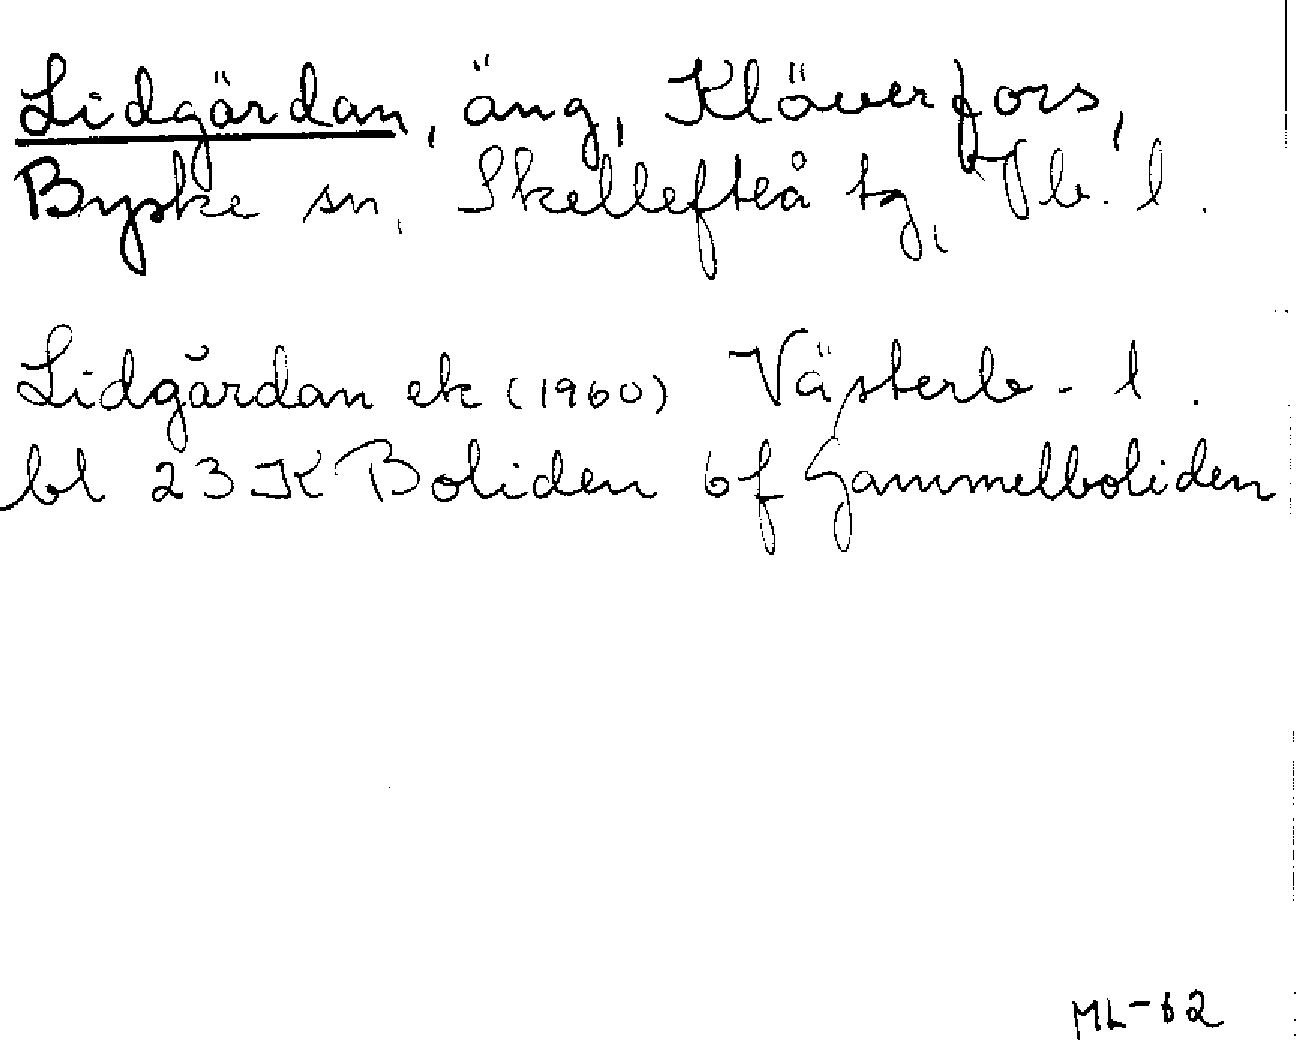 Lidgärdan, äng, Kläverfors,
Byske sn, Skellefteå tg, Vb. l.
Lidgärdan ek (1960) Västerb-l.
bl 23 K Boliden 6f Gammelboliden
ML-62